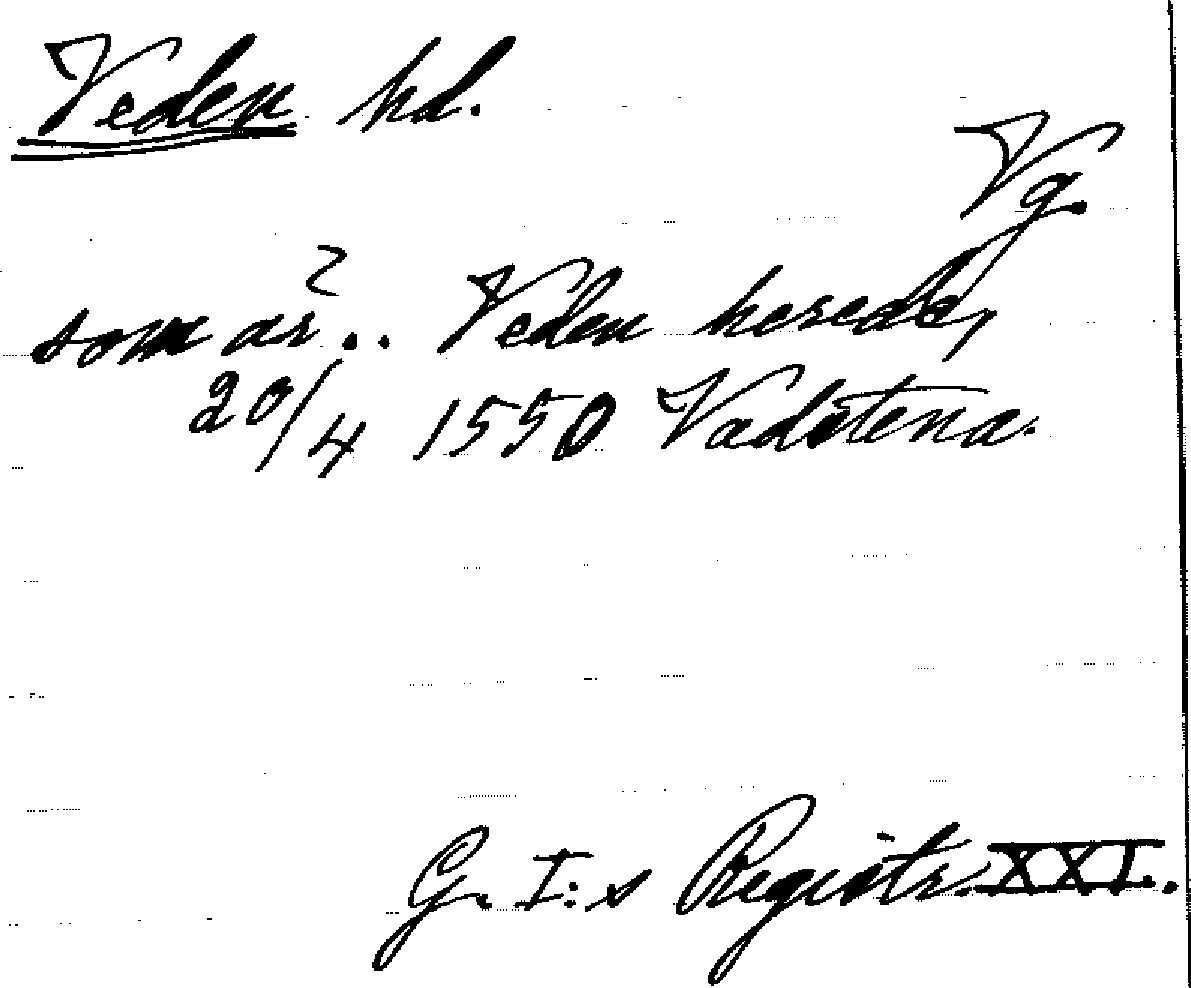 Veden hd.
Vg.
som är.. Veden herede,
20/4 1550 Vadstena.
G. I:s Registr. XXI.